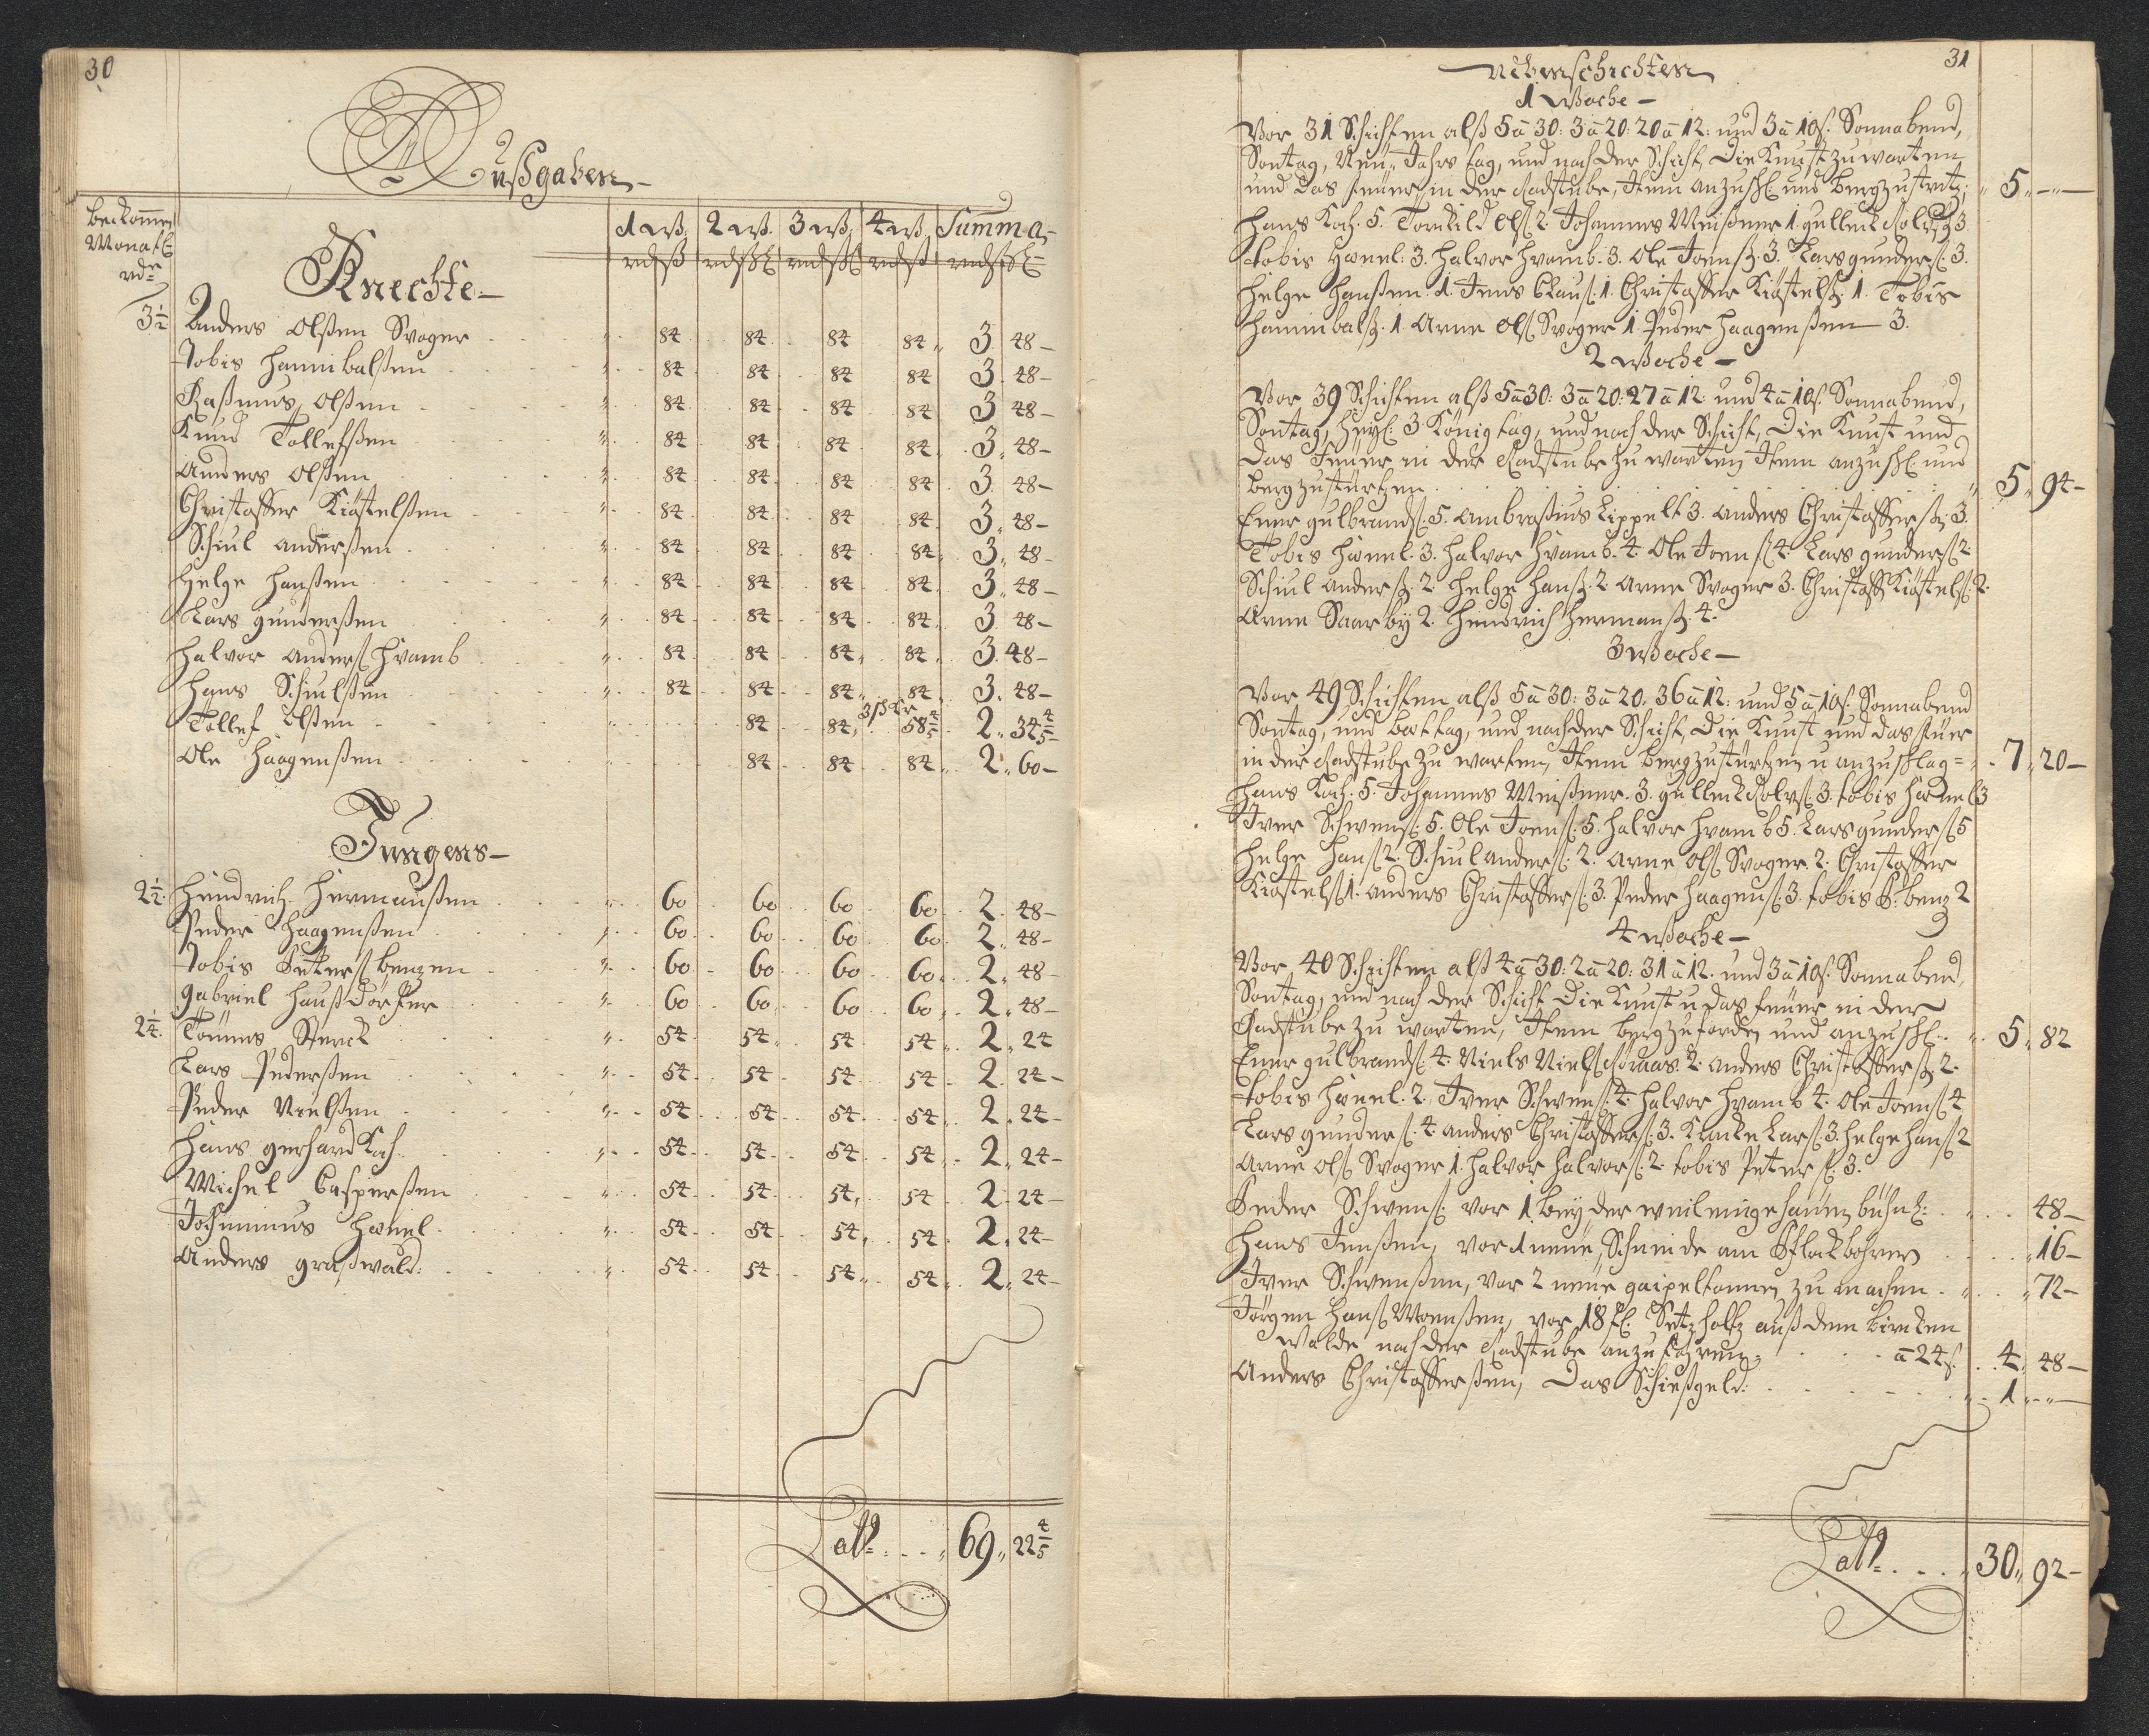 30
Außgaben
bekommen
Monatl
rdr
1 wß. 2 wß. 3 wß. 4 wß. Summa
rdß rdßl rdßl rdß rdßl
Knechte
3 1/2 Anders Olßen Svager 84 84 84 84 3 48
Tobis Hannibalßen 84 84 84 84 3 48
Raßmus Olßen 84 84 84 84 3 48
Knud Tollefßen 84 84 84 84 3 48
Anders Olßen 84 84 84 84 3 48
Christoffer Kiöstelßen 84 84 84 84 3 48
Schiul Anderßen 84 84 84 84 3 48
Helge Hanßen 84 84 84 84 3 48
Lars Gunderßen 84 84 84 84 3 48
Halvor Anderß Hvamb 84 84 84 84 3 48
Hans Schiulßen 84 84 84 84 3 48
Tollef Olßen 84 84 58 4/5 2 34 4/5
Ole Haagenßen 84 84 84 2 60
Jungens
2 1/2 Hendrich Hermanßen 60 60 60 60 2 48
Peder Haagenßen 60 60 60 60 2 48
Tobis Peterß Benzen 60 60 60 60 2 48
Gabriel Haußdörffer 60 60 60 60 2 48
2 1/4 Tönnes Sterck 54 54 54 54 2 24
Lars Pederßen 54 54 54 54 2 24
Peder Nielßen 54 54 54 54 2 24
Hans Gerhard Koch 54 54 54 54 2 24
Michel Casperßen 54 54 54 54 2 24
Johannus Hänel 54 54 54 54 2 24
Anders Graßwald 54 54 54 54 2 24
Latt 69 22 4/5
31
Nebenschichten
1 Woche
Vor 31 Schichten alß 5 a 30: 3 a 20: 20 a 12: und 3 a 10 ß. Sonnabend,
Sontag, Neu Jahrs tag, und nach der Schicht, die Kunst zu warten
und das feüer in der Radstube, Item anzuschl. und Berg zu stürtz: 5
Hans Koch. 5. Torckild Olß 2. Johannes Meißner 1. Gulleick Rolvß 3
Tobis Hänel: 3. Halvor Hvamb. 3. Ole Joenß. 3. Lars Gunderß. 3.
Helge Hanßen. 1. Jens Clauß. 1. Christoffer Kiöstelß. 1. Tobis
Hannibalß. 1. Arne Olß Svager 1. Peder Haagenßen 3.
2 Woche
Vor 39 Schichten alß 5 a 30: 3 a 20: 27 a 12 und 4 a 10 ß. Sonnabend,
Sontag, Heyl. 3 König tag, und nach der Schicht, die Kunst und
das Feüer in der Radstube zu warten, Item anzuschl. und
Berg zu stürtzen 5 94
Ener Gulbrandß. 5. Ambroßius Lippelt 3. Anders Christofferß. 3.
Tobis Hänel. 3. Halvor Hvamb. 4. Ole Joenß 4. Lars Gunderß 2
Schiul Anderß. 2. Helge Hanß. 2 Arne Svager 3. Christoff Kiöstelß. 2.
Arne Saarby 2. Hendrich Hermanß. 4.
3 Woche
Vor 49 Schichten alß 5 a 30: 3 a 20. 36 a 12: und 5 a 10 ß. Sonnabend
Sontag, und Bettag, und nach der Schicht, die Kunst und das Feüer
in der Radstube zu warten, Item Berg zu stürtzen u anzuschlag 7 20
Hans Koch. 5. Johannes Meißner. 3. Gulleick Rolvß 3. Tobis Hänel 3
Iver Schwenß. 5. Ole Joenß. 5. Halvor Hvamb 5. Lars Gunderß 5
Helge Hanß 2. Schiul Anderß. 2. Arne Olß Svager. 2. Christoffer
Kiöstelß 1. Anders Christofferß. 3. Peder Haagenß. 3. Tobis P. Benz 2
4 Woche
Vor 40 Schichten alß 4 a 30: 2 a 20: 31 a 12. und 3 a 10 ß. Sonnabend,
Sontag, und nach der Schicht die Kunst u das feüer in der
Radstube zu warten, Item Berg zu fordn und anzuschl. 5 82
Ener Gulbrandß. 4. Niels Nielß 2. Anders Christofferß. 2.
Tobis Hänel. 2. Iver Schwenß. 4. Halvor Hvamb 4. Ole Joenß 4
Lars Gunderß. 4. Anders Christofferß. 3. Larß. 3. Helge Hanß 2
Arne Olß Svager 1. Halvor Halvorß. 2. Tobis Peterß. 3.
Peder Schwenß. vor 1 bey der 48
Hans Jenßen, vor 1 neüe Schneide am Pflockbohrer 16
Iver Schwenßen, vor 2 neüe gaipeltonnen zu machen 72
Jörgen Hanß Moenßen, vor 18 st. Setzholtz auß dem Bircken
walde nach der Radstube anzuführen a 24 ß. 4 48
Anders Christofferßen, Das Schießgeld 1
Latt 30 92